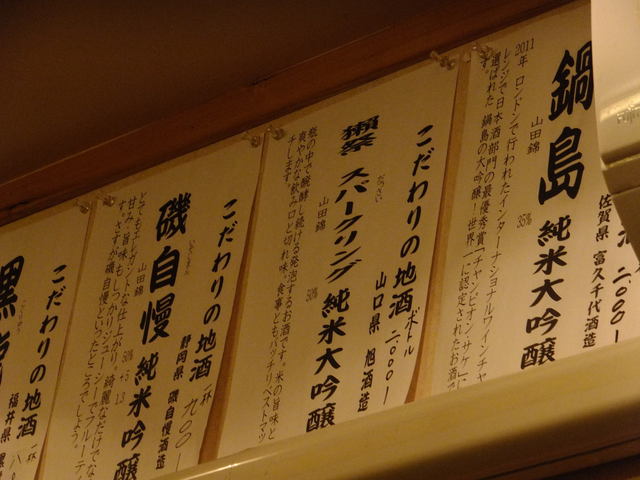 佐賀県 富久千代酒造
二〇〇〇ー
鍋島 純米大吟醸
山田錦
35%
2011年 ロンドンで行われたインターナショナルワインチャ
レンジで日本酒部門の最優秀賞「チャンピオン・サケ」に
選ばれた 鍋島の大吟醸!世界一に認定されたお酒
です。
こだわりの地酒 ボトル 二〇〇〇ー
山口県 旭酒造
だっさい
獺祭 スパークリング 純米大吟醸
山田錦
50%
瓶の中で醗酵し続ける発泡するお酒です。米の旨味と
爽やかな飲み口と切れ味、食事ともバッチリベストマッ
チします。
こだわりの地酒 一杯 九〇〇ー
静岡県 磯自慢酒造
いそじまん
磯自慢 純米吟醸
山田錦
50% +5 1.3
とてもエレガントな仕上がり。綺麗なだけでな
甘み、旨味もしっかりジューシーでフルーティ
す。さすが磯自慢といったところでしょう。
こだわりの地酒 一杯
福井県
黒